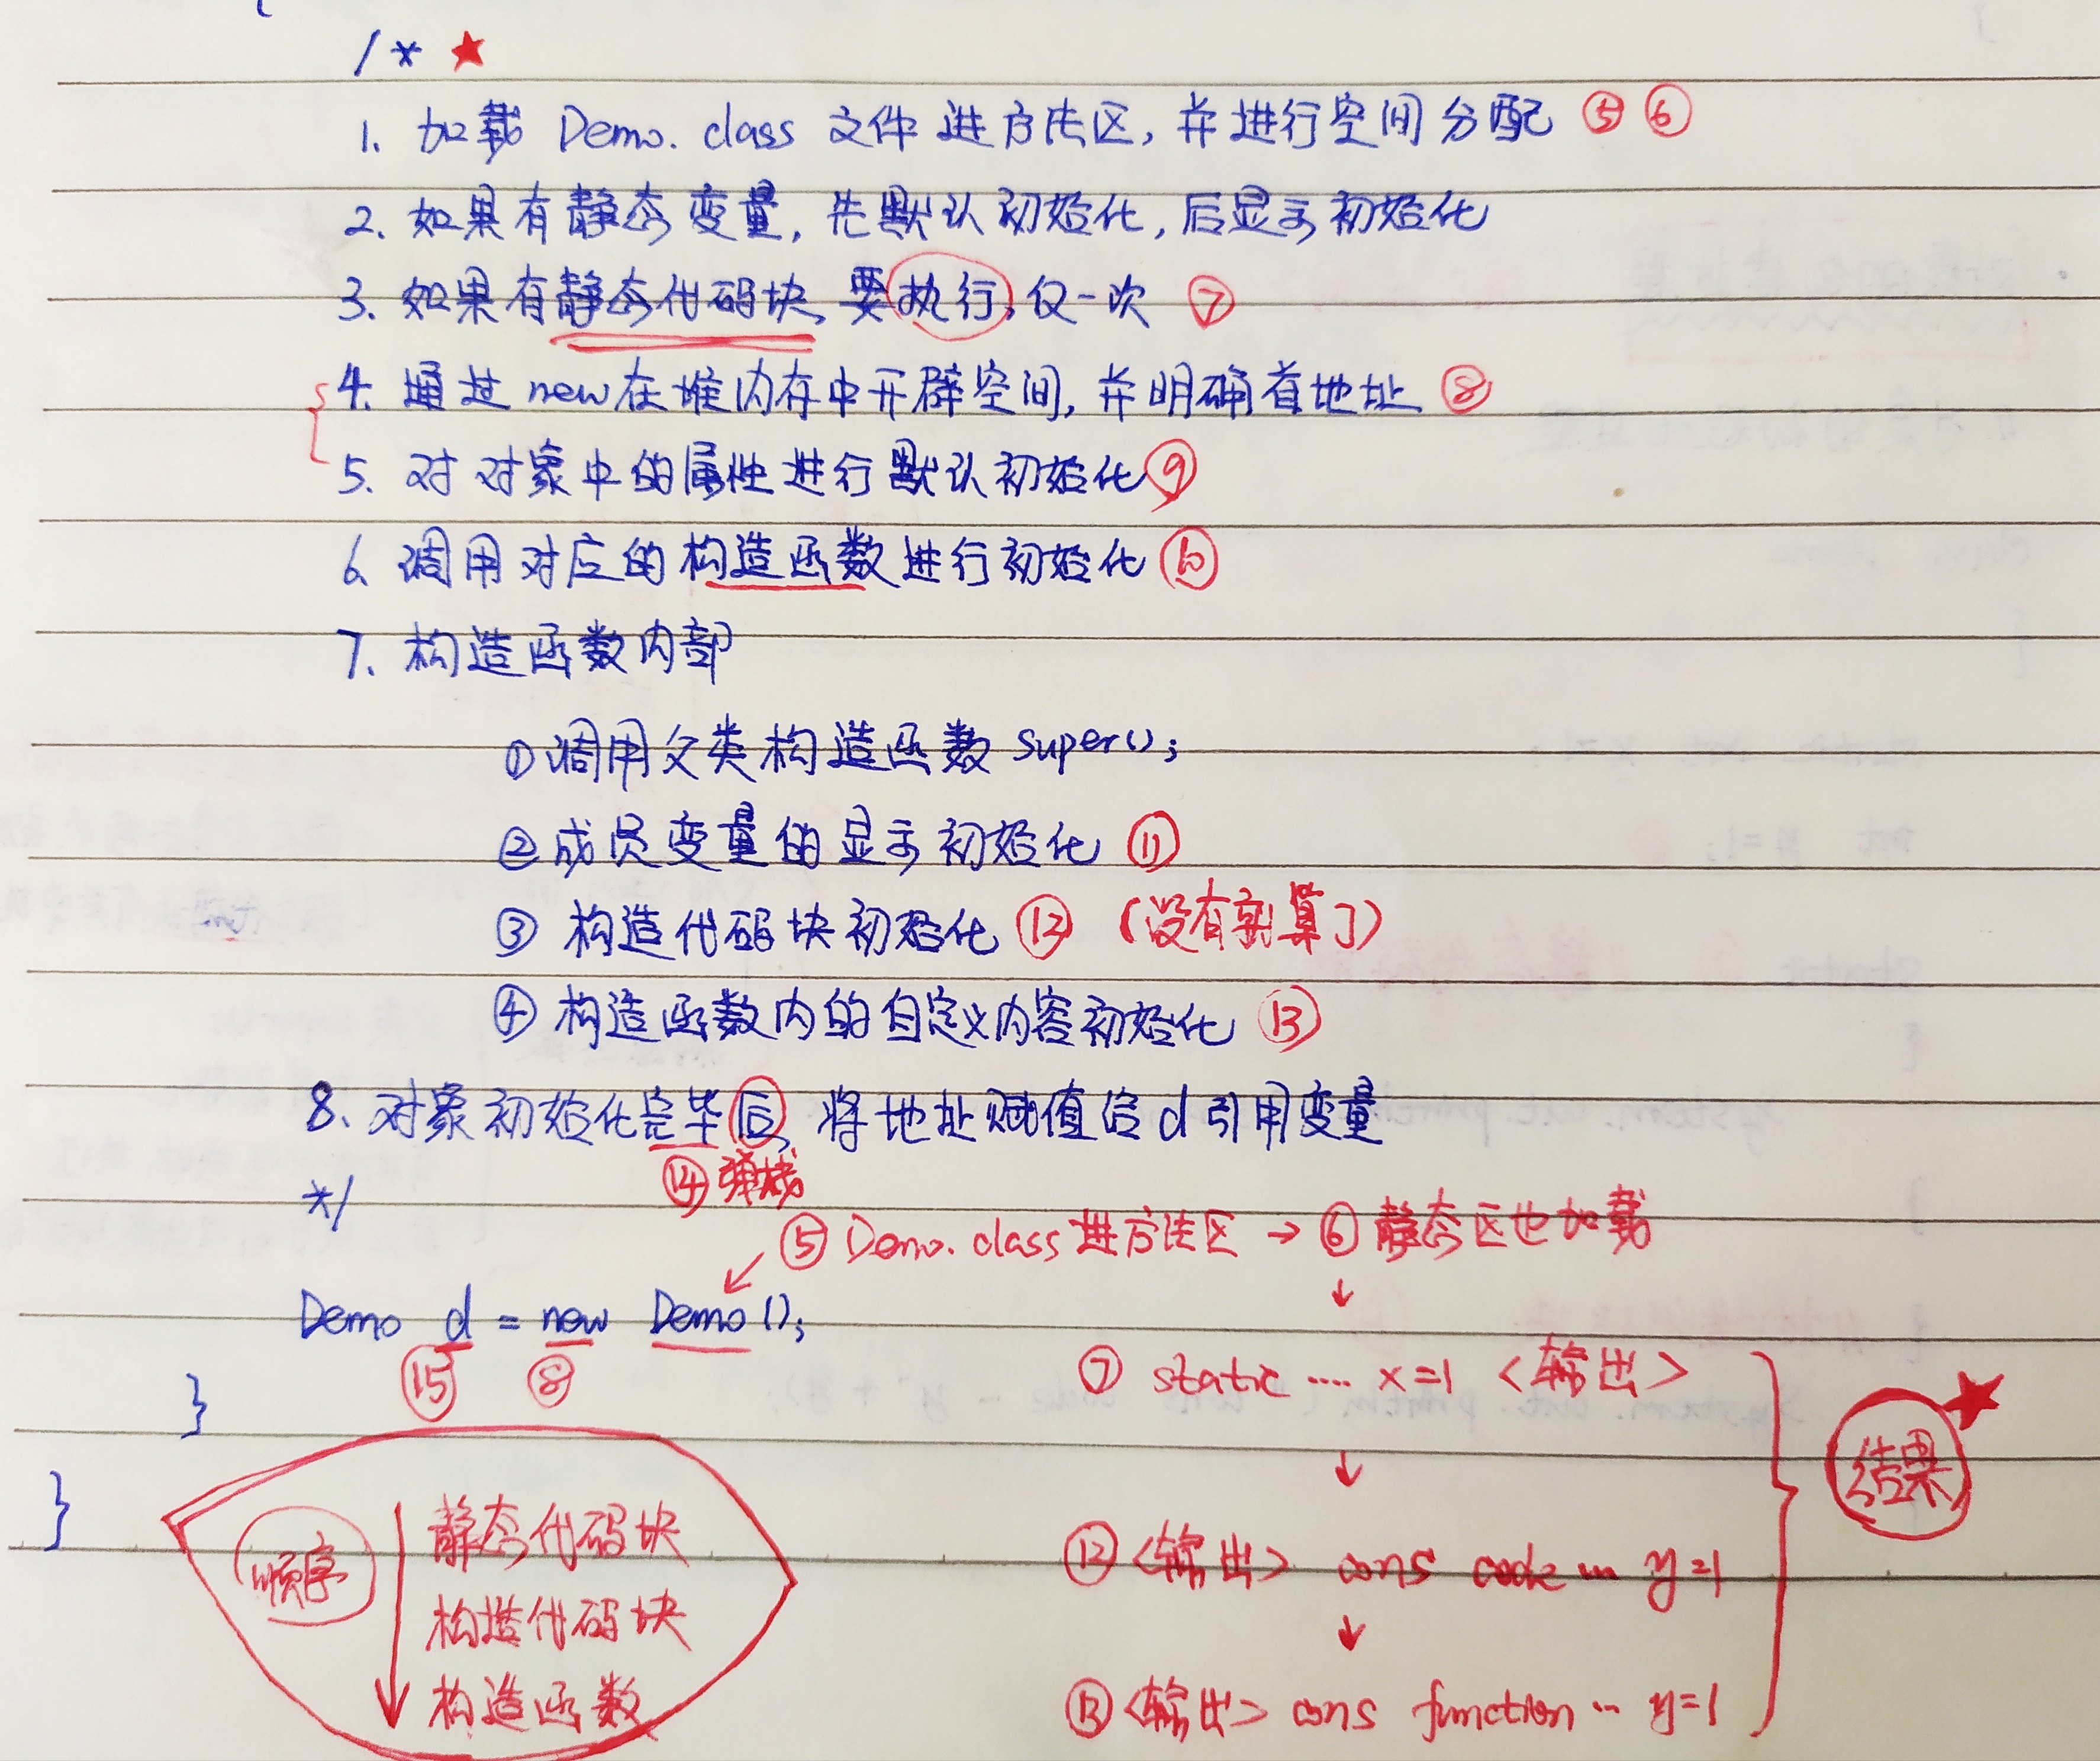 {
/* ★
1. 加载 Demo.class 文件进方法区, 并进行空间分配 ⑤ ⑥
2. 如果有静态变量, 先默认初始化, 后显示初始化
3. 如果有静态代码块, 要执行, 仅一次 ⑦
4. 通过 new 在堆内存中开辟空间, 并明确首地址 ⑧
5. 对对象中的属性进行默认初始化 ⑨
6. 调用对应的构造函数进行初始化 ⑩
7. 构造函数内部
① 调用父类构造函数 super();
② 成员变量的显示初始化 ⑪
③ 构造代码块初始化 ⑫ (没有就算了)
④ 构造函数内的自定义内容初始化 ⑬
8. 对象初始化完毕后, 将地址赋值给 d 引用变量
*/ ⑭ 弹栈
⑤ Demo.class 进方法区 → ⑥ 静态区也加载
Demo d = new Demo();
⑮ ⑧
}
⑦ static .... x=1 <输出>
}
顺序
静态代码块
构造代码块
构造函数
⑫ <输出> cons code ... y=1
⑬ <输出> cons function .. y=1
结果 ★